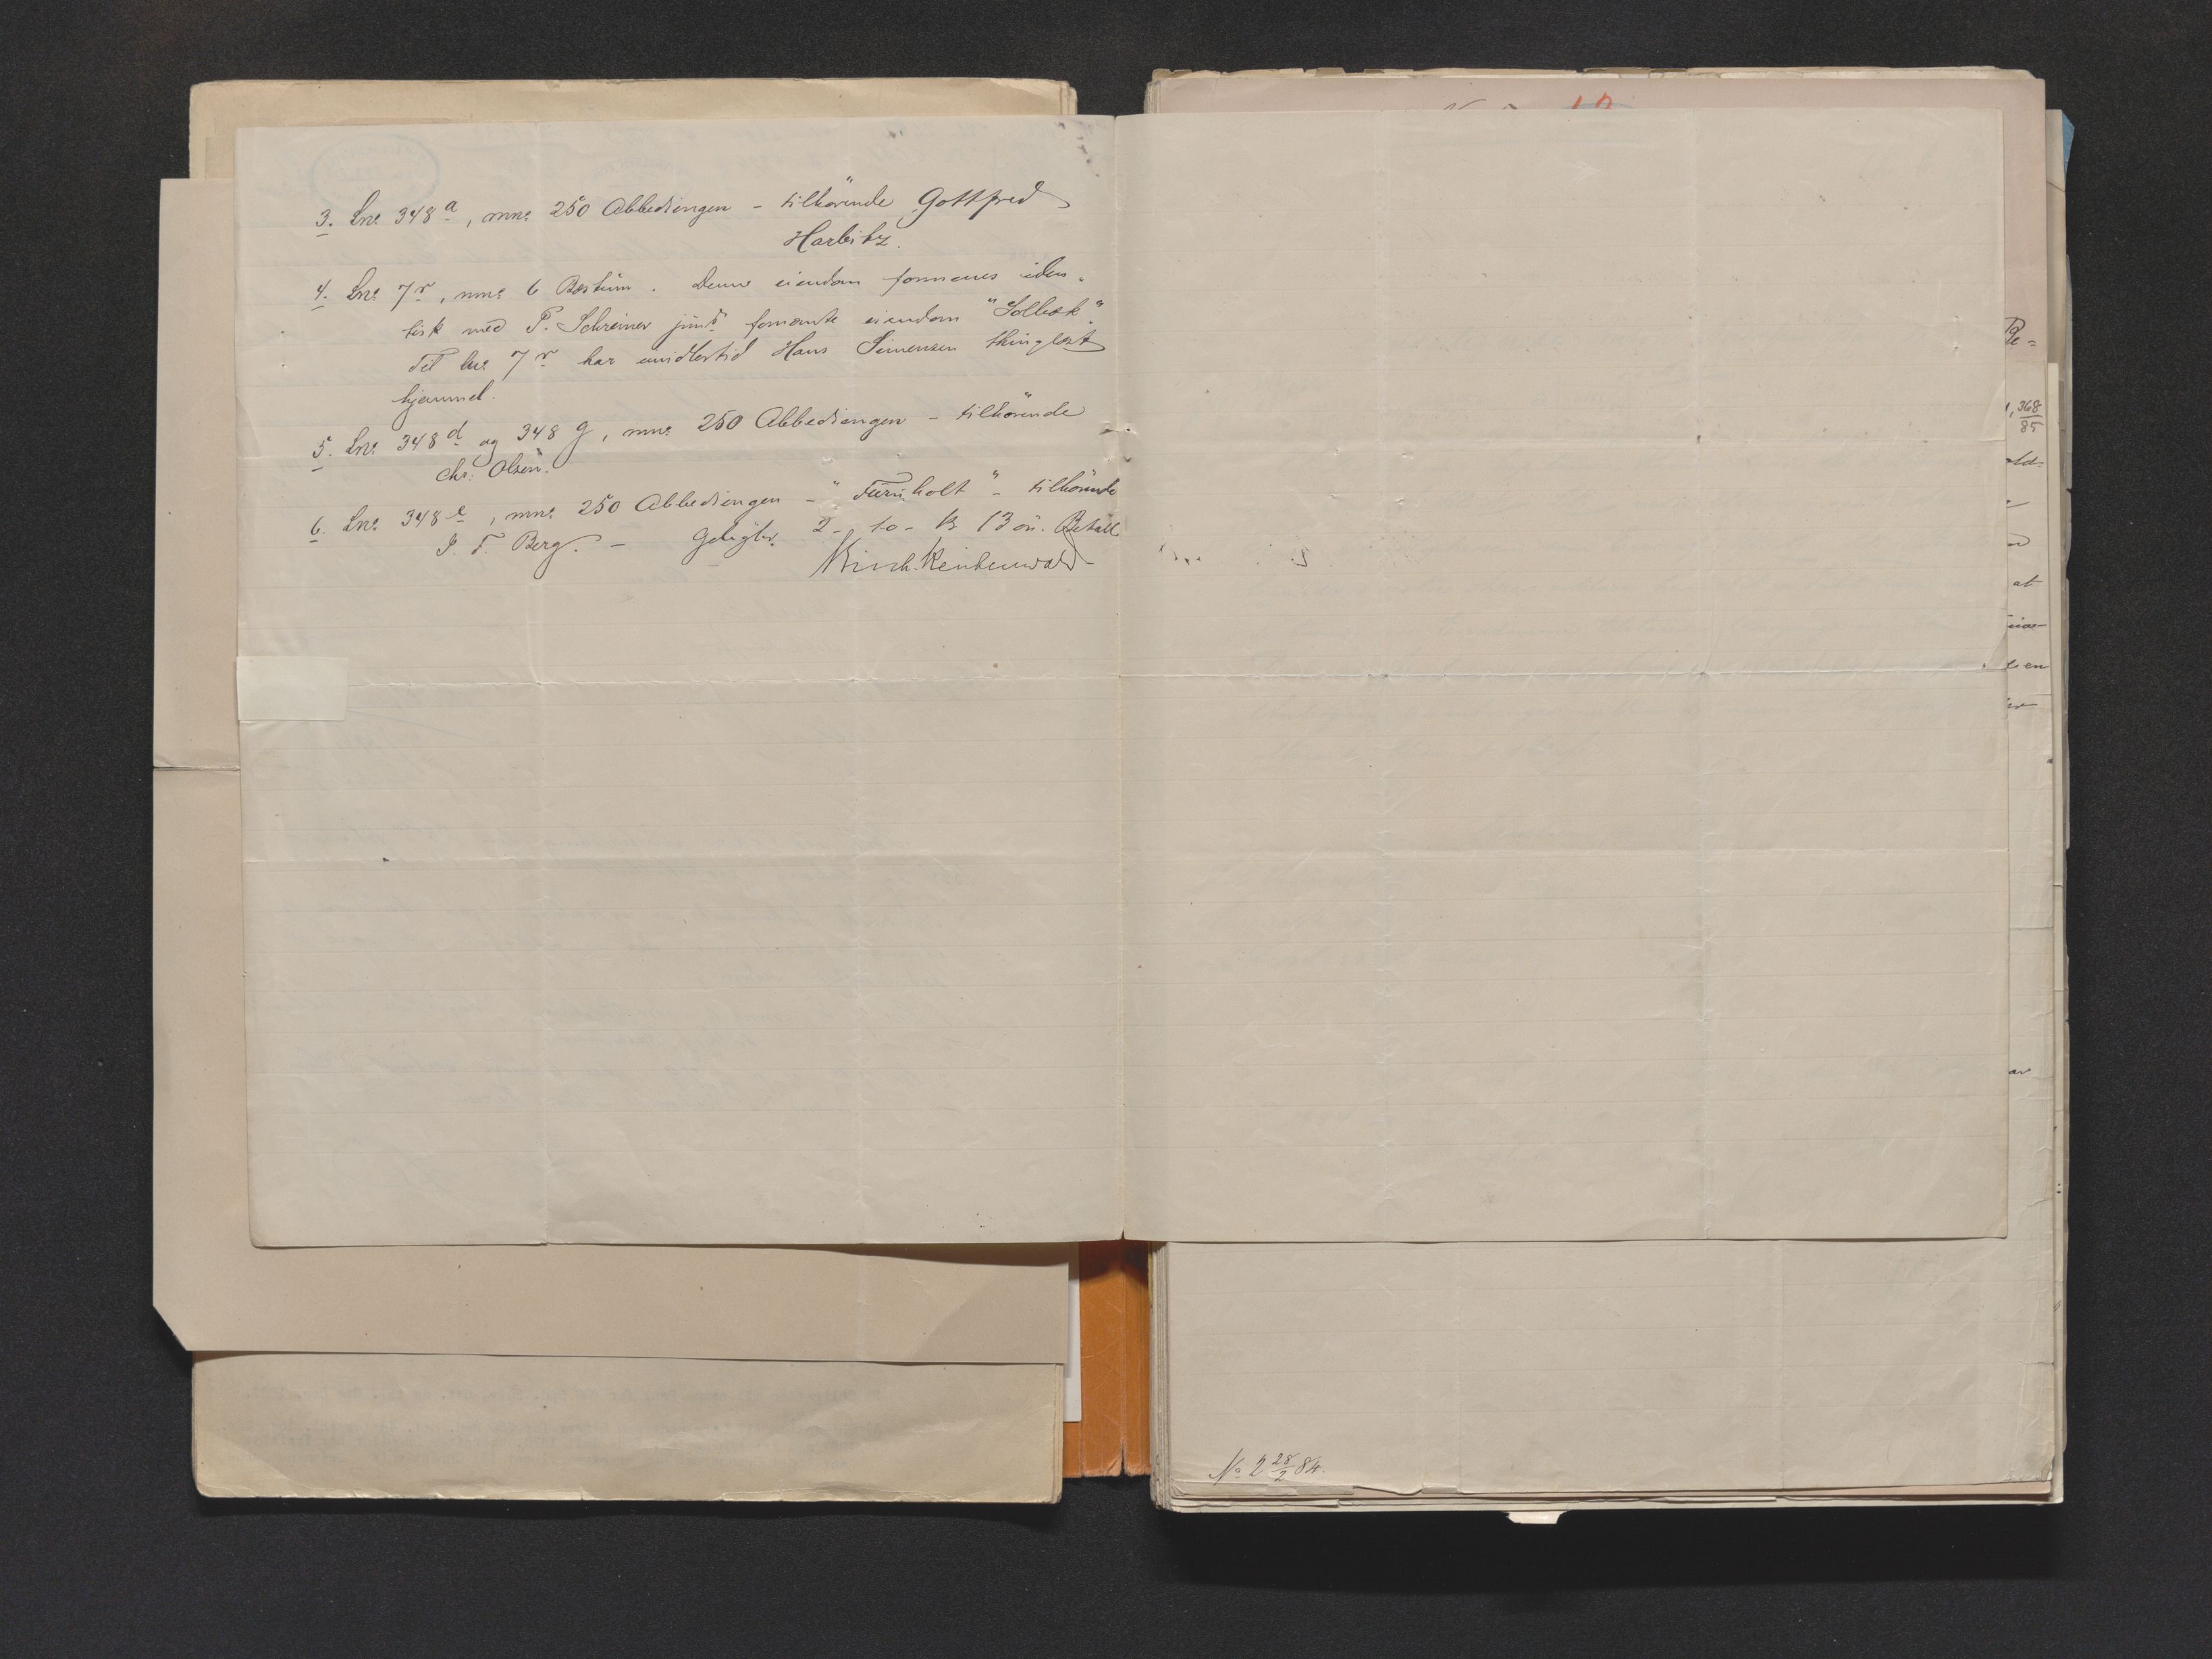 3. Lne 348a, mne 250 Abbediengen - tilhörende Gottfred
Harbitz.
4. Lne 7r, mne 6 Bestum. Denne eiendom formenes iden-
tisk med P. Schreiner junrs eiendom "Solbak".
Til lne 7r har imidlertid Hans Simensen thinglæst
hjemmel.
5. Lne 348d og 348g, mne 250 Abbediengen - tilhörende
Chr. Olsen.
6. Lne 348e, mne 250 Abbediengen - "Furuholt" - tilhörende
J. F. Berg. - 2 - 10 - 13 Betalt
Kirch-Reichenwald
Be=
368
85
old-
at
en
No 2 28/2 84.